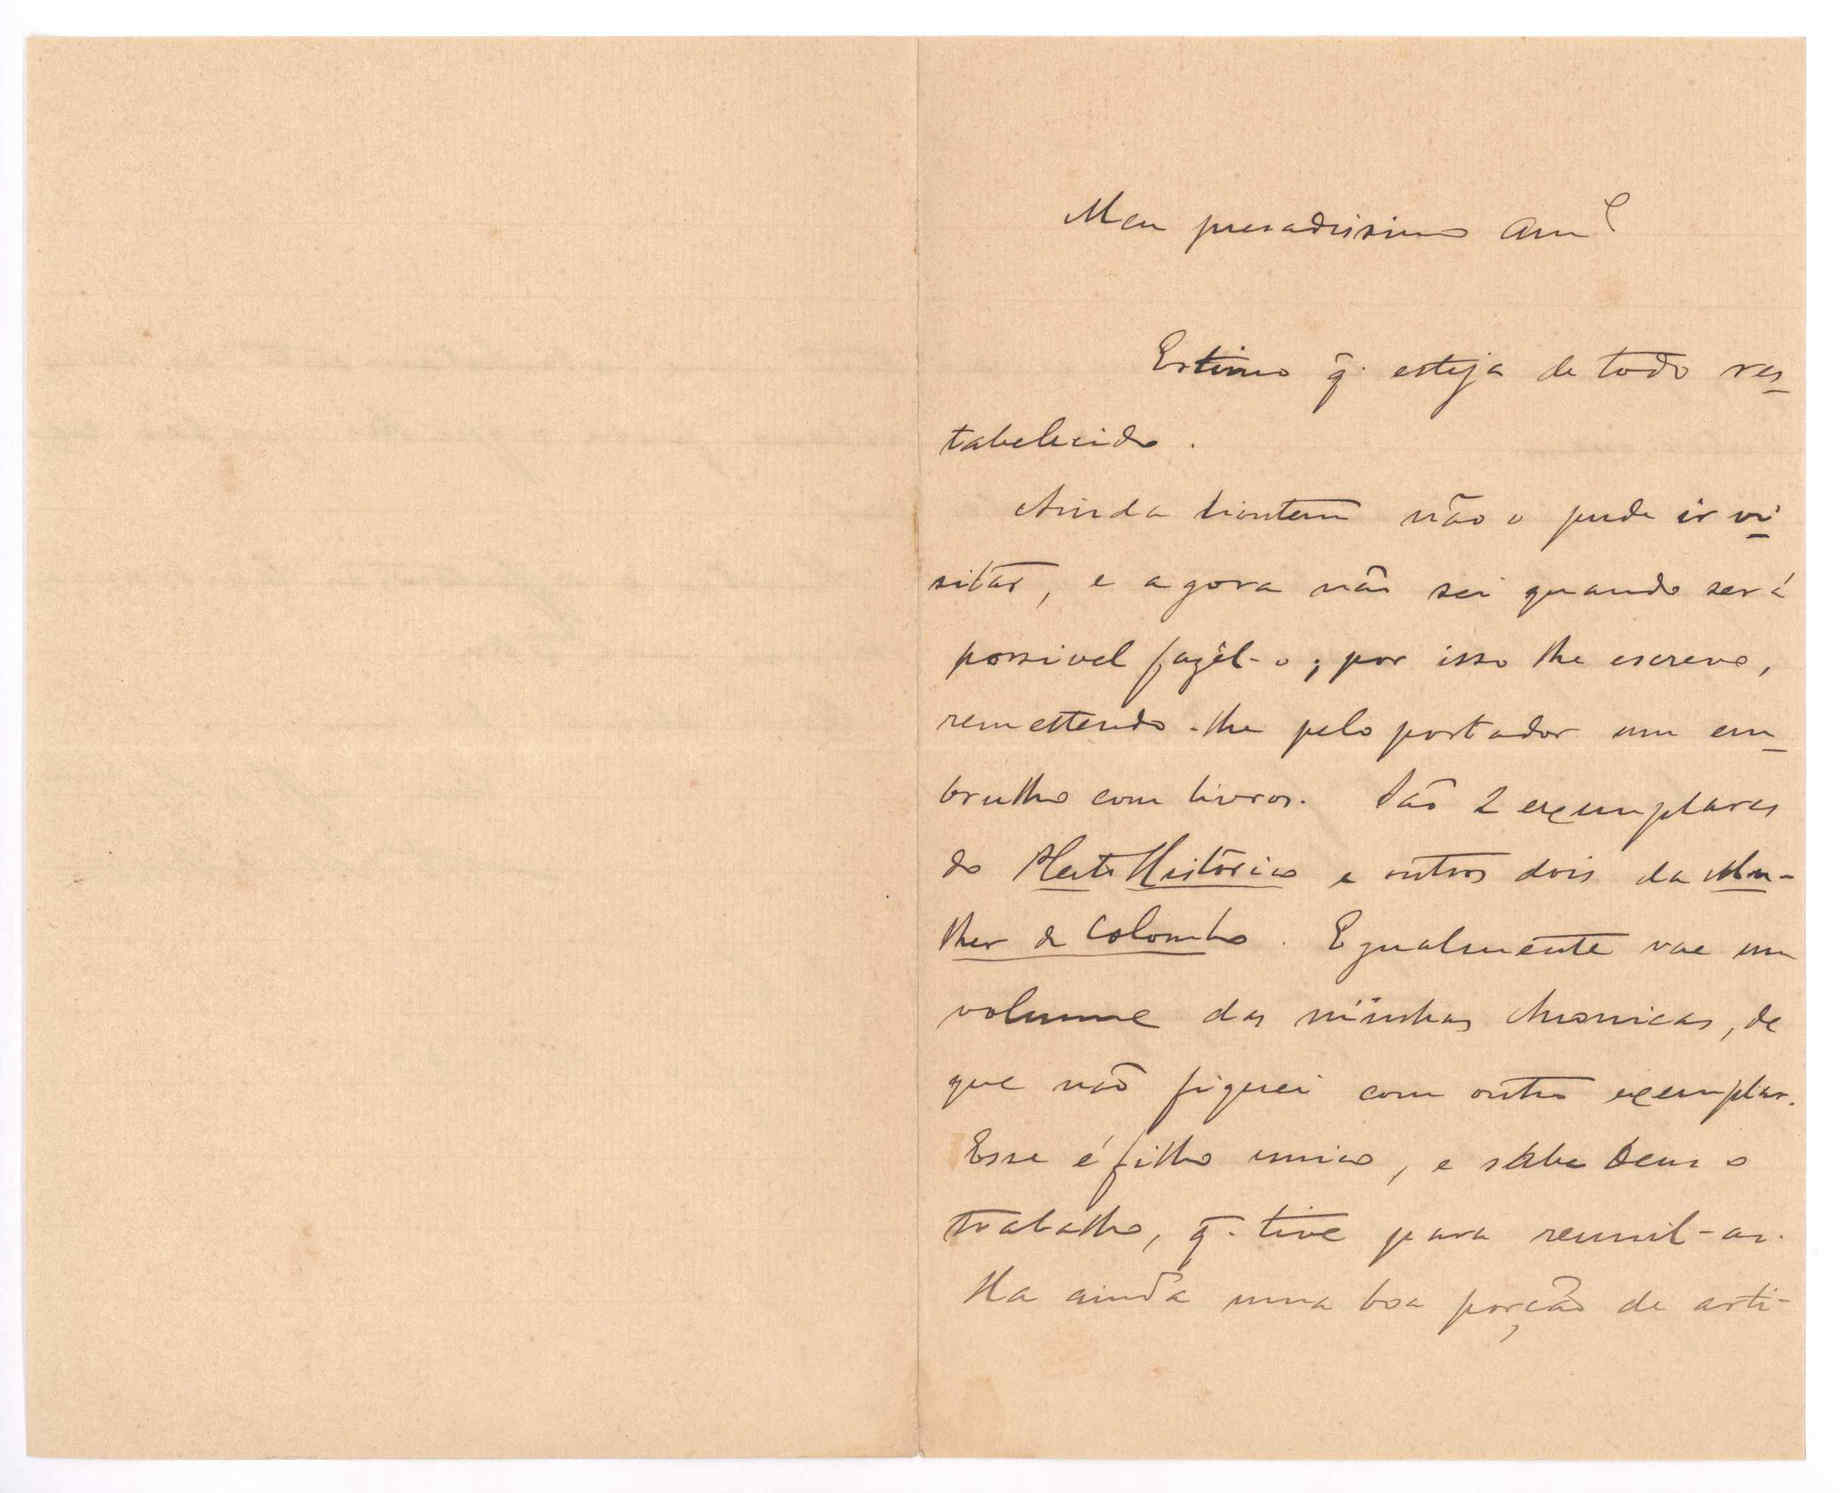 Meu presadissimo Amº
Estimo q̃. esteja de todo res-
tabelecido.
Ainda hontem não o pude ir vi-
sitar, e agora não sei quando será
possivel fazêl-o; por isso lhe escrevo,
remettendo-lhe pelo portador um em-
brulho com livros. São 2 exemplares
do Histórico e outros dois da Mu-
lher de Colombo. Egualmente vae um
volume das minhas chronicas, de
que não fiquei com outro exemplar.
Esse é filho unico, e sabe Deus o
trabalho, q̃. tive para reunil-as.
Ha ainda uma boa porção de arti-